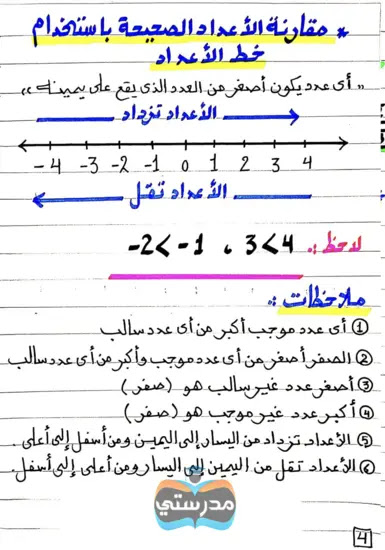 * مقارنة الأعداد الصحيحة باستخدام
خط الأعداد
" أى عدد يكون أصغر من العدد الذى يقع على يمينه "
الأعداد تزداد
-4 -3 -2 -1 0 1 2 3 4
الأعداد تقل
لاحظ :. 3<4 ، -2<-1
ملاحظات :.
① أى عدد موجب أكبر من أى عدد سالب
② الصفر أصغر من أى عدد موجب وأكبر من أى عدد سالب
③ أصغر عدد غير سالب هو (صفر)
④ أكبر عدد غير موجب هو (صفر)
⑤ الأعداد تزداد من اليسار إلى اليمين ومن أسفل إلى أعلى .
⑥ الأعداد تقل من اليمين إلى اليسار ومن أعلى إلى أسفل .
مدرستي
4